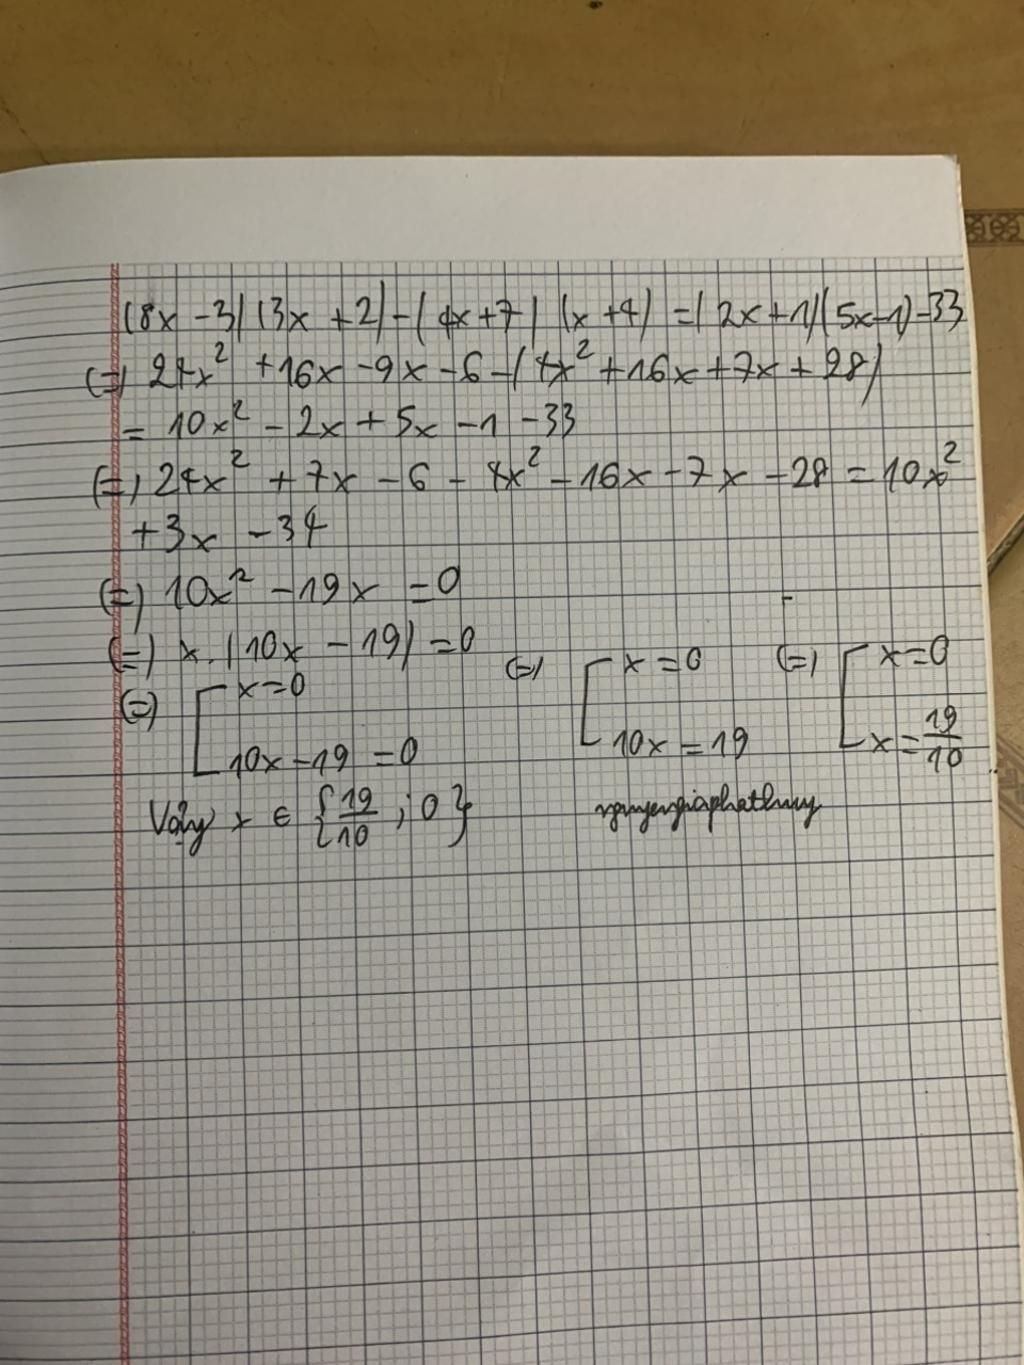 (8x - 3)(3x + 2) - (4x + 7)(x + 4) = (2x + 1)(5x - 1) - 33
(=) 24x² + 16x - 9x - 6 - (4x² + 16x + 7x + 28)
= 10x² - 2x + 5x - 1 - 33
(=) 24x² + 7x - 6 - 4x² - 16x - 7x - 28 = 10x²
+ 3x - 34
(=) 10x² - 19x = 0
(=) x. (10x - 19) = 0
(=) [ x = 0
10x - 19 = 0
(=) [ x = 0
10x = 19
(=) [ x = 0
x = 19/10
Vậy x ∈ {19/10 ; 0}